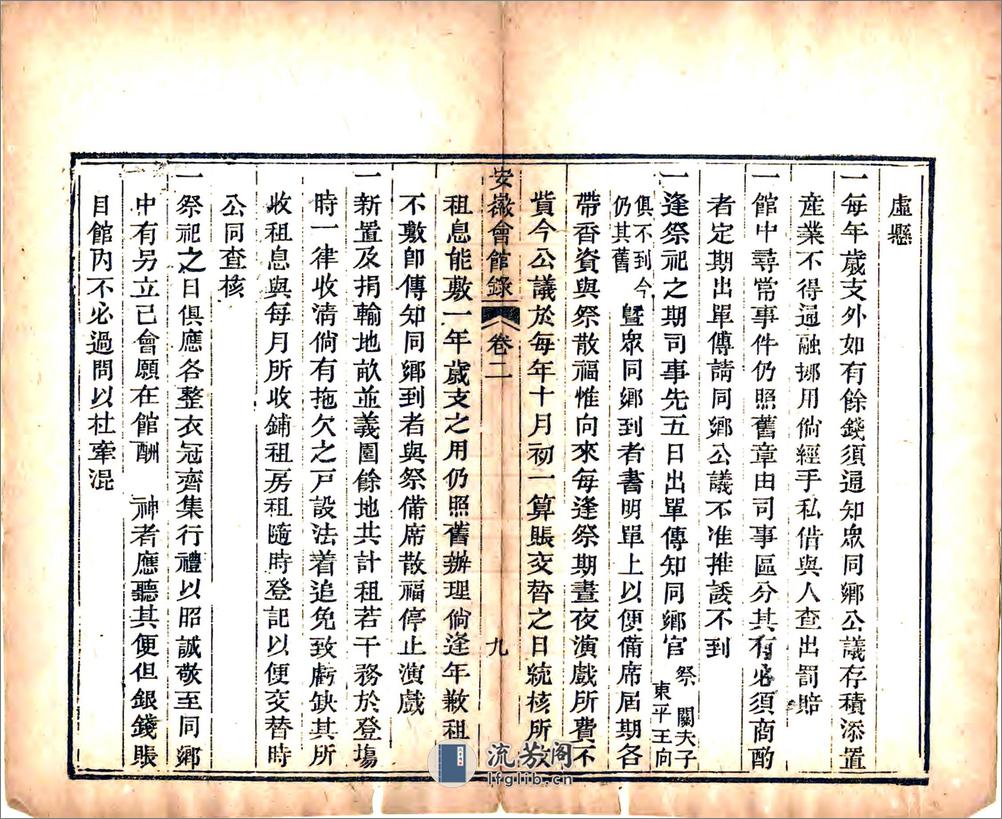 虛懸
一每年歲支外如有餘錢須通知衆同鄉公議存積添置
產業不得通融挪用倘經手私借與人查出罰賠
一館中尋常事件仍照舊章由司事區分其有必須商酌
者定期出單傳請同鄉公議不准推諉不到
一逢祭祀之期司事先五日出單傳知同鄉官 祭 關夫子
東平王向
俱不到今
仍其舊 曁衆同鄉到者書明單上以便備席屆期各
帶香資與祭散福惟向來每逢祭期晝夜演戲所費不
貲今公議於每年十月初一算賬交替之日統核所收
安徽會館錄 卷二 九
租息能敷一年歲支之用仍照舊辦理倘逢年歉租
不敷卽傳知同鄉到者與祭備席散福停止演戲
一新置及捐輸地畝並義園餘地共計租若干務於登塲
時一律收清倘有拖欠之戶設法着追免致虧缺其所
收租息與每月所收鋪租房租隨時登記以便交替時
公同查核
一祭祀之日俱應各整衣冠齊集行禮以昭誠敬至同鄉
中有另立己會願在館酬 神者應聽其便但銀錢賬
目館內不必過問以杜牽混
流芳閣
lfglib.cn